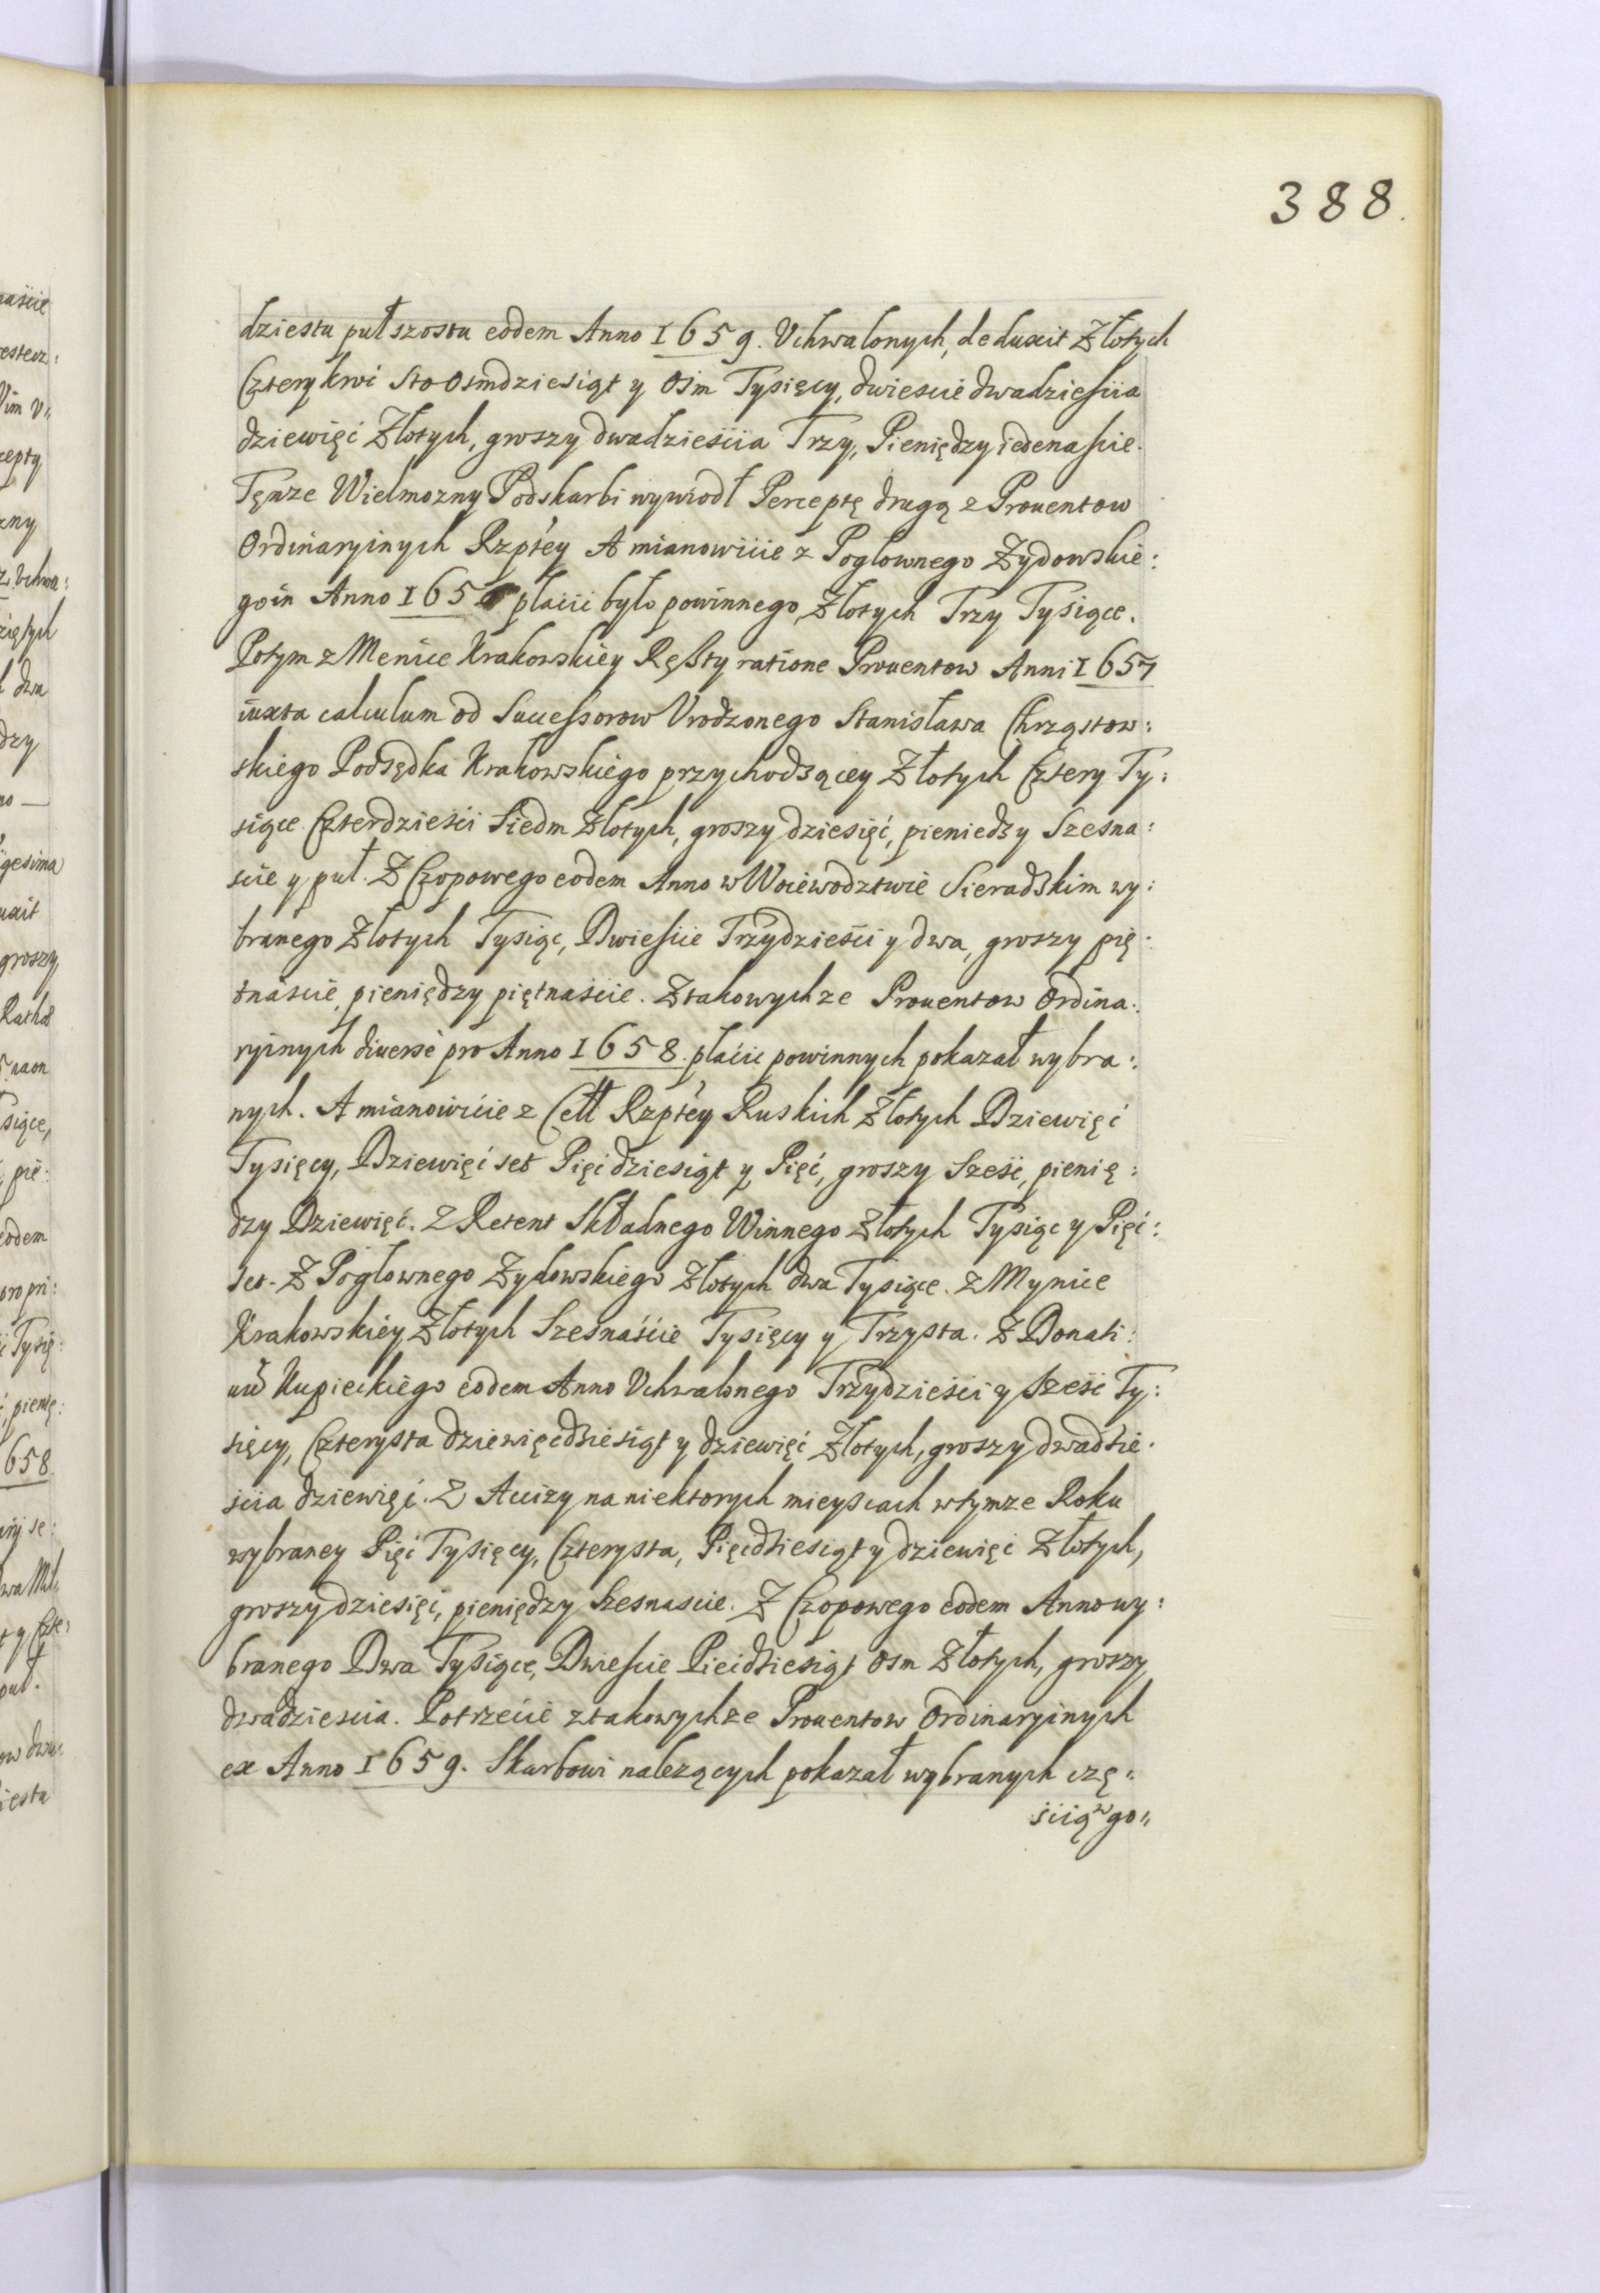 388.
dziesta puł szosta eodem Anno 1659. Uchwalonych, deduxit Złotych
Cztery kroć Sto Osmdziesiąt y Ośm Tysięcy, dwieście dwadzieścia
dziewięć Złotych, groszy dwadzieścia Trzy, Pieniędzy iedenaście.
Tęnże Wielmozny Podskarbi wywiodł Perceptę drugą z Prouentow
Ordinaryinych Rzptey A mianowicie z Pogłownego Zydowskie:
go in Anno 165 płacić było powinnego Złotych Trzy Tysiące.
Potym z Menice Krakowskiey Ręszty ratione Prouentow Anni 1657
iuxta calculum od Successorow Urodzonego Stanisława Chrząstow:
skiego Podsędka Krakowskiego przychodzącey Złotych Cztery Ty:
siące Czterdzieści Siedm Złotych, groszy dziesięć, pieniedzy Szesna:
ście y puł. Z Czopowego eodem Anno w Woiewodztwie Sieradzkim wy:
branego Złotych Tysiąc, Dwieście Trzydzieści y dwa, groszy pię:
tnaście, pieniędzy piętnaście. Z takowychze Prouentow Ordina:
ryinych diuersè pro Anno 1658. płacić powinnych pokazał wybra:
nych. A mianowicie z Cełł Rzptey Ruskich Złotych Dziewięć
Tysięcy, Dziewięć set Pięćdziesiąt y Pięć, groszy Sześć, pienię:
dzy Dziewięć. Z Retent Składnego Winnego Złotych Tysiąc y Pięć:
set. Z Pogłownego Zydowskiego Złotych dwa Tysiące. z Mynice
Krakowskiey Złotych Szesnaście Tysięcy y Trzysta. Z Donati:
uū Kupieckiego eodem Anno Uchwalonego Trzydzieści y Sześć Ty:
sięcy, Czterysta dziewięcdziesiąt y dziewięć Złotych, groszy dwadzie:
ścia dziewięć. Z Accizy na niektorych mieyscach w tymze Roku
wybraney Pięć Tysięcy, Czterysta, Pięcdziesiąt y dziewięć Złotych,
groszy dziesięć, pieniędzy Szesnascie. Z Czopowego eodem Anno wy:
branego Dwa Tysiące, Dwieście Piecdziesiąt osm Złotych, groszy
dwadziescia. Potrzecie z takowychze Prouentow Ordinaryinych
ex Anno 1659. Skarbowi nalezących pokazał wybranych czę:
ścią w go: